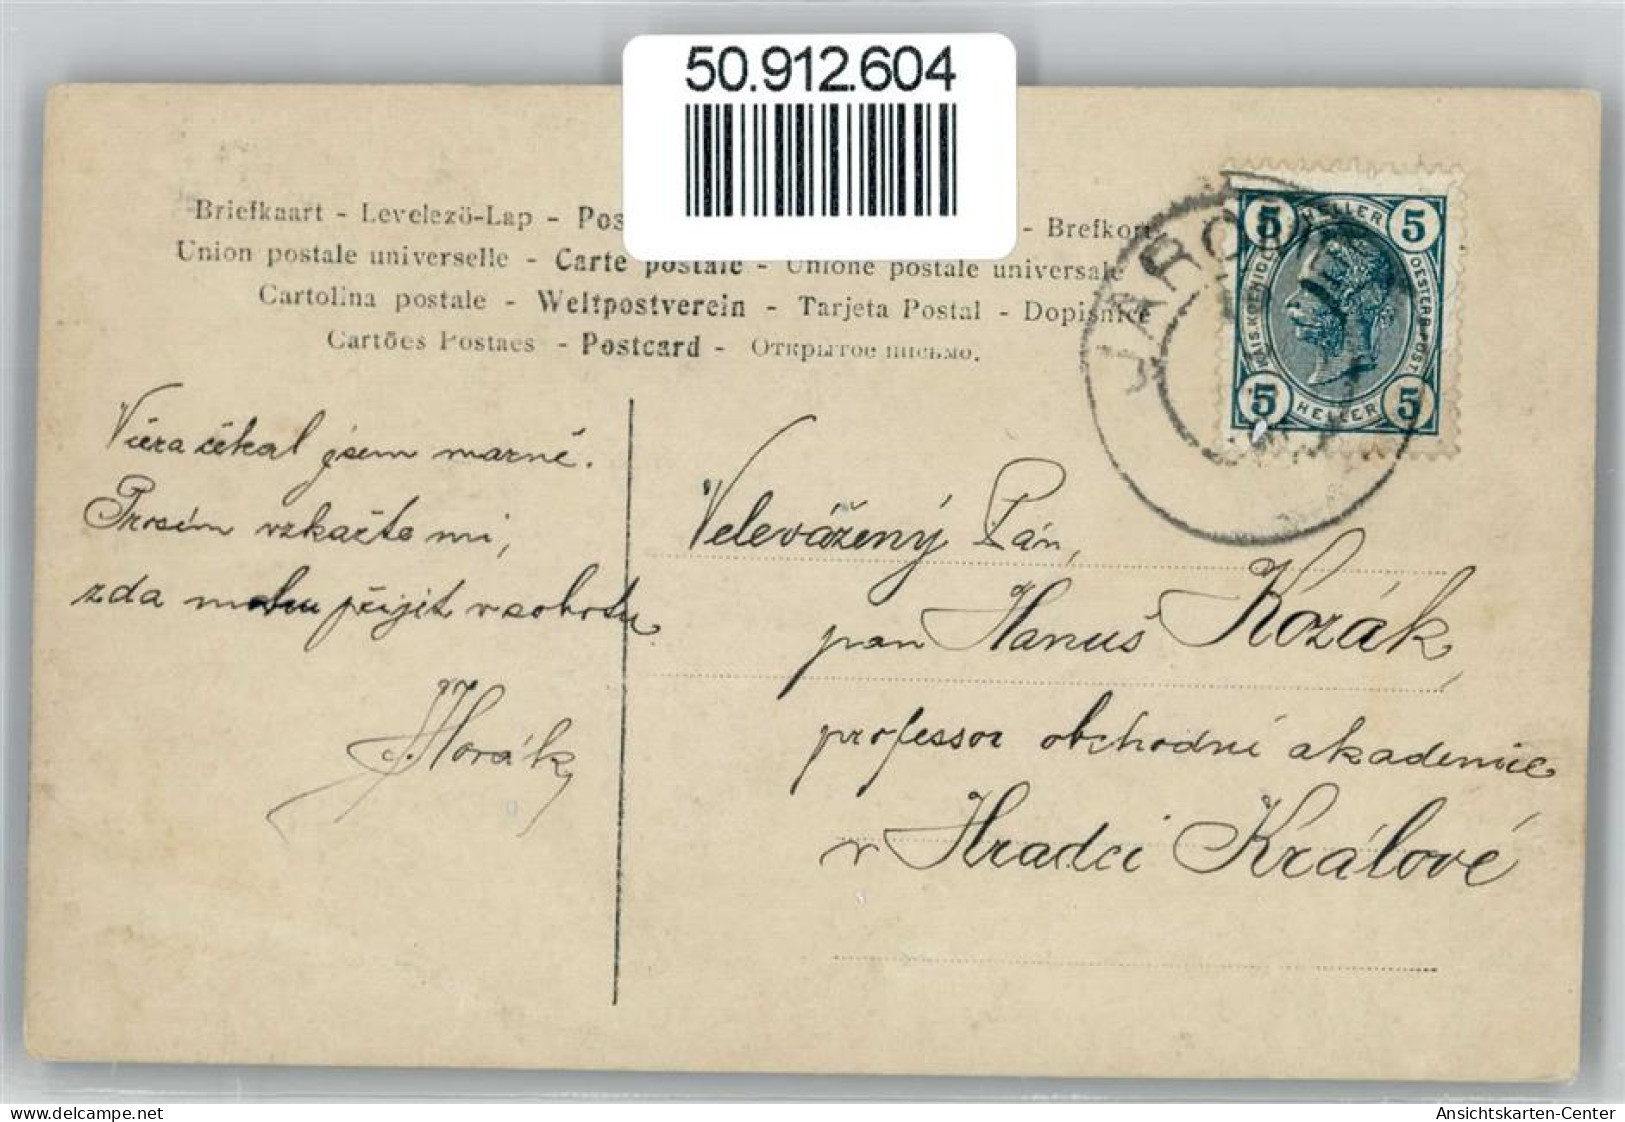 50.912.604
Briefkaart - Levelezö-Lap - Pos - Brefkort
Union postale universelle - Carte postale - Unione postale universale
Cartolina postale - Weltpostverein - Tarjeta Postal - Dopisnice
Cartões Postaes - Postcard - Открытое письмо.
5 HELLER 5
KAIS. KOENIGL. OESTERR. POST
5 HELLER 5
JARO
Včera čekal jsem marně.
Prosím vzkažte mi,
zda mohu přijít v sobotu
J. Horák
Velevážený Pán,
pan Hanuš Kozák,
professor obchodní akademie
v Hradci Králové
delcampe.net
Ansichtskarten-Center